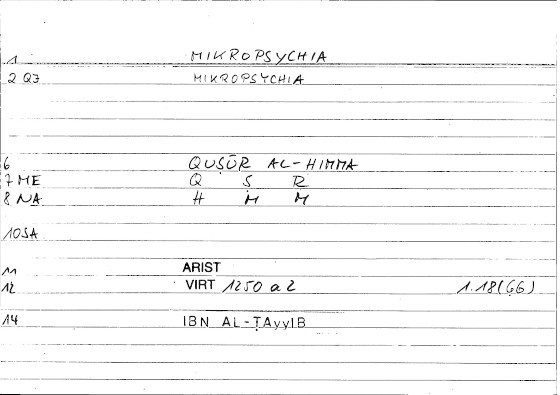 1 MIKROPSYCHIA
2 QJ MIKROPSYCHIA
6 QUṢŪR AL-HIMMA
7 ME Q Ṣ R
8 NA H M M
10 SA
11 ARIST
12 VIRT 1250 a 2 1.18(66)
14 IBN AL-ṬAyyIB